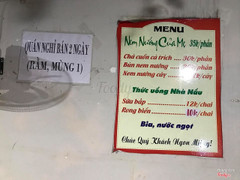 QUÁN NGHỈ BÁN 2 NGÀY
(RẰM, MÙNG 1)
MENU
Nem Nướng Của Mẹ 35k/phần
Chả cuốn cá trích 30k/phần
Bún nem nướng /phần
Xem nướng cây /cây
Thức uống Nhà Nấu
Sữa bắp 12k/chai
Rong biển 10k/chai
Bia, nước ngọt
Chúc Quý Khách Ngon Miệng!